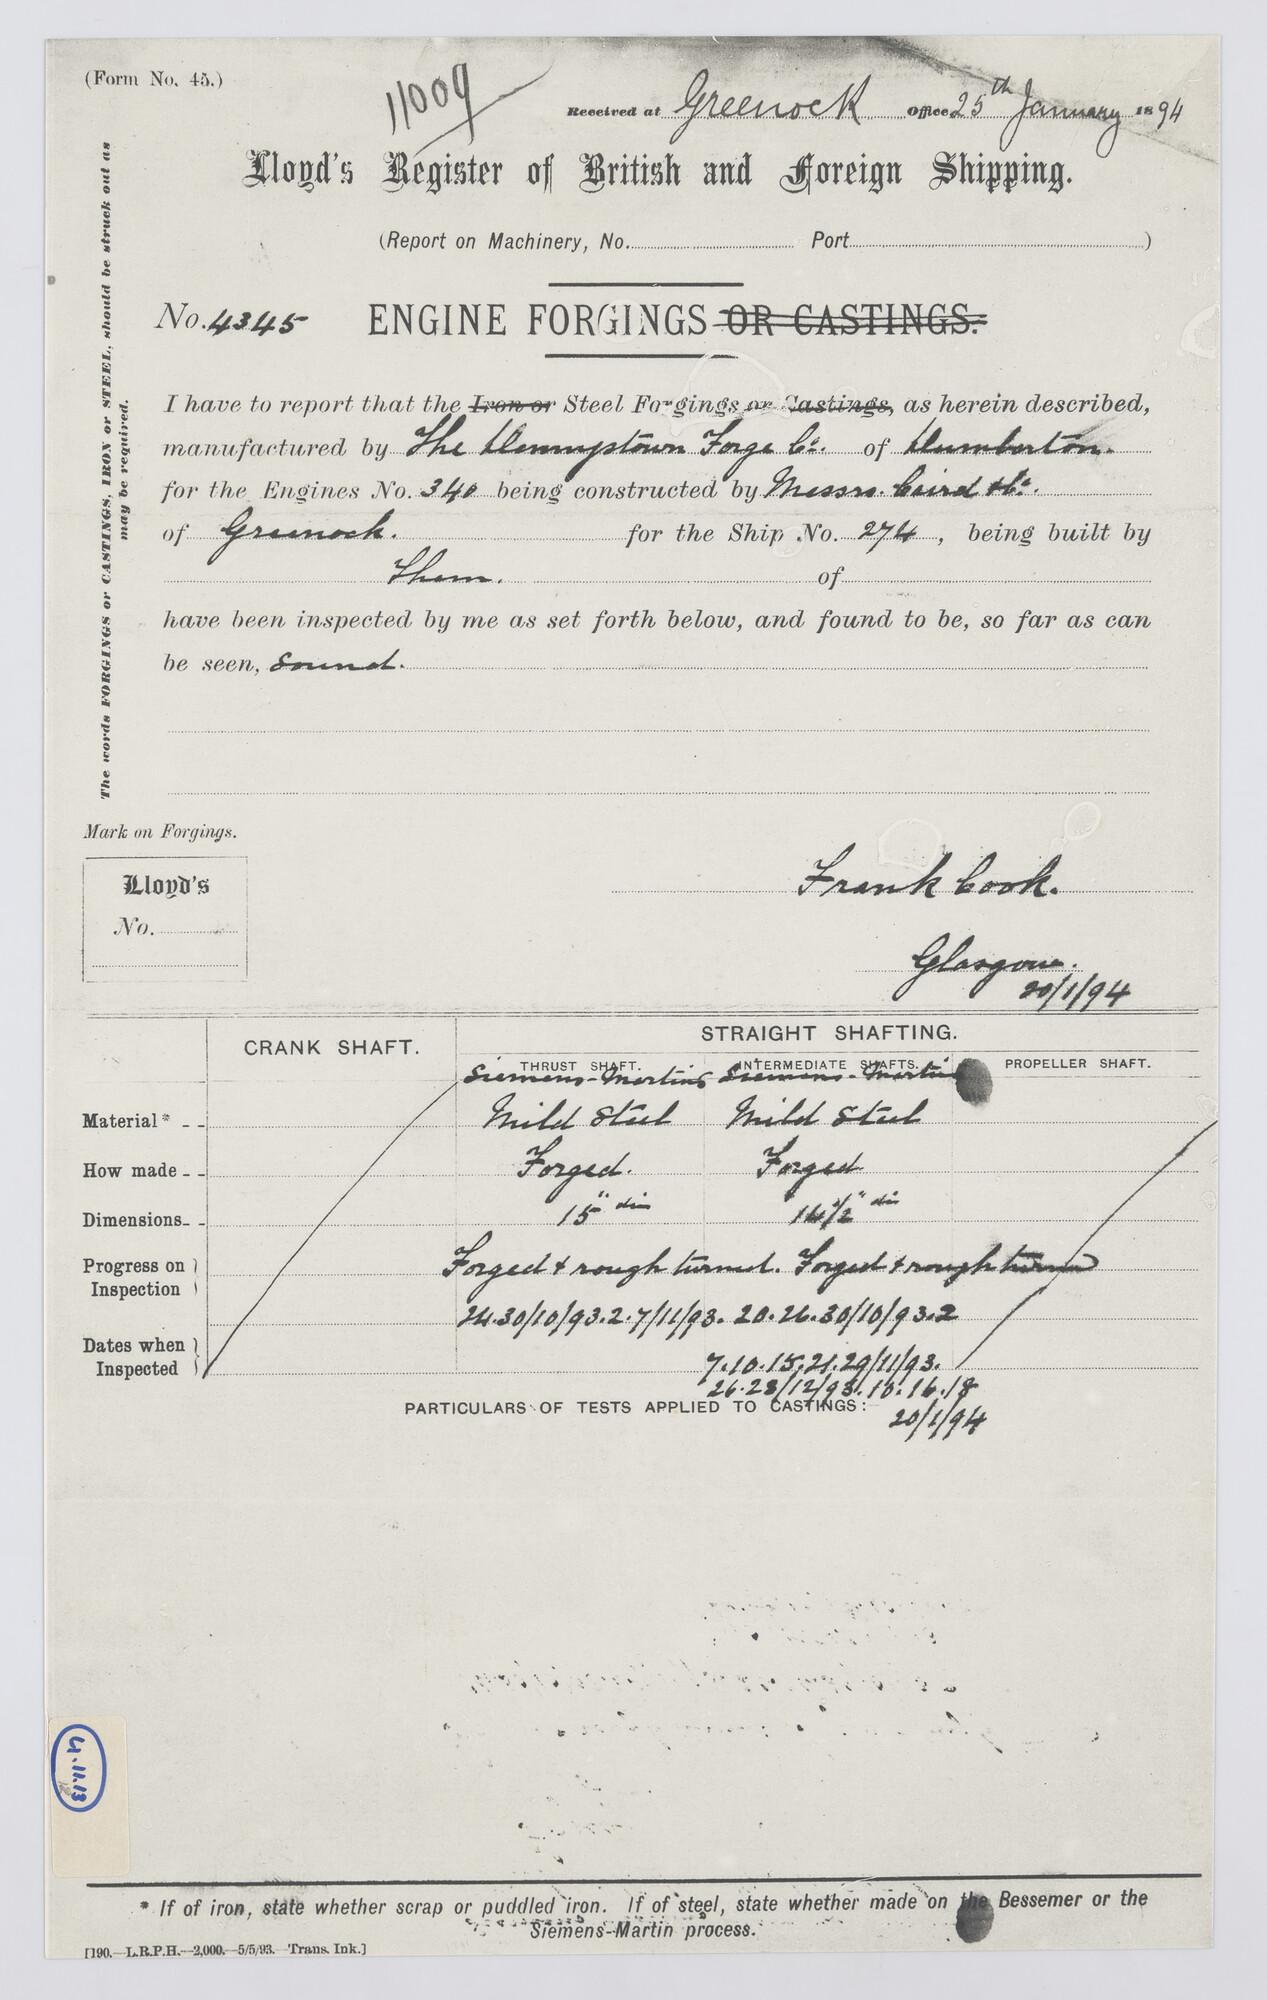 (Form No. 45.)
11009
Received at Greenock Office 25th January 1894
Lloyd's Register of British and Foreign Shipping.
(Report on Machinery, No. Port )
No. 4345 ENGINE FORGINGS OR CASTINGS.
The words FORGINGS or CASTINGS, IRON or STEEL, should be struck out as
may be required.
I have to report that the Iron or Steel Forgings or Castings, as herein described,
manufactured by The Dennystown Forge Co. of Dumbarton.
for the Engines No. 340 being constructed by Messrs. Caird & Co.
of Greenock. for the Ship No. 274, being built by
Them. of
have been inspected by me as set forth below, and found to be, so far as can
be seen, Sound.
Mark on Forgings.
Lloyd's
No.
Frank Cook.
Glasgow.
20/1/94
CRANK SHAFT. STRAIGHT SHAFTING.
THRUST SHAFT. INTERMEDIATE SHAFTS. PROPELLER SHAFT.
Siemens-Martins Siemens-Martin
Material* Mild Steel Mild Steel
How made Forged. Forged
Dimensions 15" dia 14 1/2" dia
Progress on Inspection Forged & rough turned. Forged & rough turned
Dates when Inspected 24.30/10/93.2.7/11/93. 20.26.30/10/93.2
7.10.15.21.29/11/93.
26.28/12/93.10.16.18
20/1/94
PARTICULARS OF TESTS APPLIED TO CASTINGS:
4.11.13
* If of iron, state whether scrap or puddled iron. If of steel, state whether made on the Bessemer or the
Siemens-Martin process.
[190.—L.R.P.H.—2,000.—5/5/93.—Trans. Ink.]